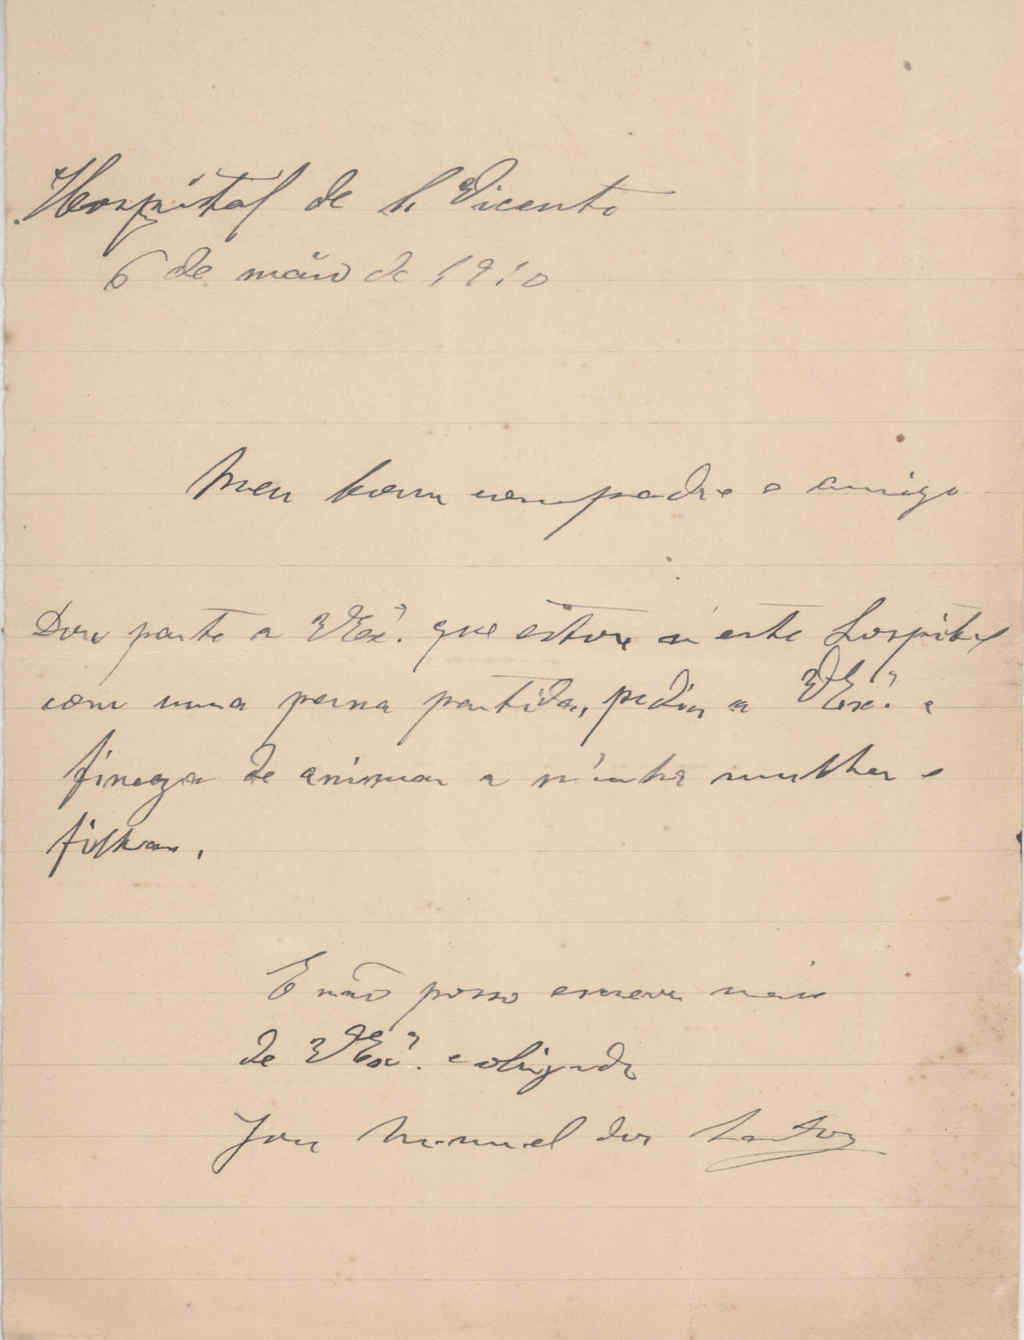 Hospital de S. Vicente
6 de maio de 1910
Meu bom compadre e amigo
Dou parte a VExª. que estou n'este hospital
com uma perna partida, pedia a VExª. a
fineza de animar a minha mulher e
filhas.
E não posso escrever mais
de VExª. e obrigado
José Manuel dos Santos